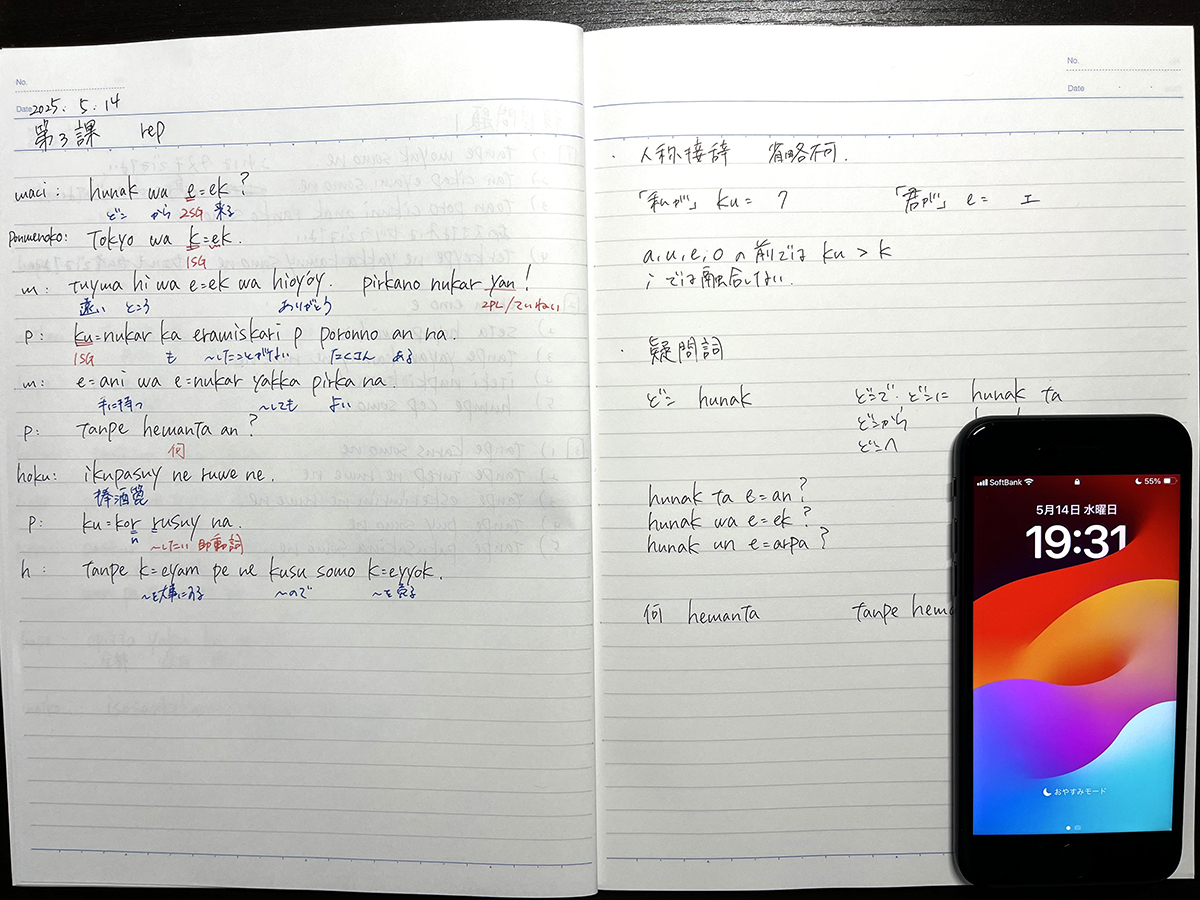 No.
Date 2025. 5. 14
第3課 rep
maci: hunak wa e=ek?
どこ から 2SG 来る
Ponmenoko: Tokyo wa k=ek.
1SG
m: tuyma hi wa e=ek wa hioy'oy. pirkano nukar yan!
遠い ところ ありがとう 2PL/ていねい
p: ku=nukar ka eramiskari p poronno an na.
1SG も ~したことがない たくさん ある
m: e=ani wa e=nukar yakka pirka na.
手に持つ ~しても よい
p: tanpe hemanta an?
何
hoku: ikupasuy ne ruwe ne.
捧酒箆
p: ku=kor rusuy na.
n ~したい 助動詞
h: tanpe k=eyam pe ne kusu somo k=eyyok.
~を大事にする ~ので ~を売る
No.
Date
・人称接辞 省略不可.
「私が」 ku= ク 「君が」 e= エ
a,u,e,o の前では ku > k
i では融合しない.
・疑問詞
どこ hunak どこで・どこに hunak ta
どこから
どこへ
hunak ta e=an?
hunak wa e=ek?
hunak un e=arpa?
何 hemanta tanpe hema
SoftBank 55%
5月14日 水曜日
19:31
おやすみモード